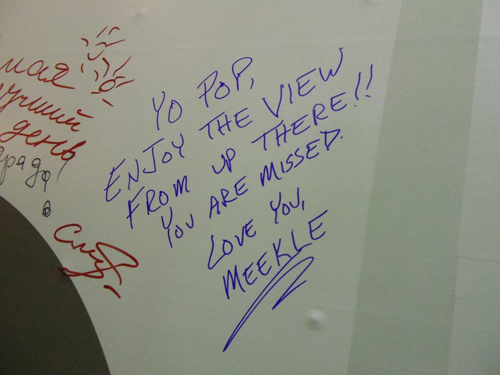 мая
лучший
день
в
YO POP,
ENJOY THE VIEW
FROM UP THERE!!
YOU ARE MISSED.
LOVE YOU,
MEEKLE